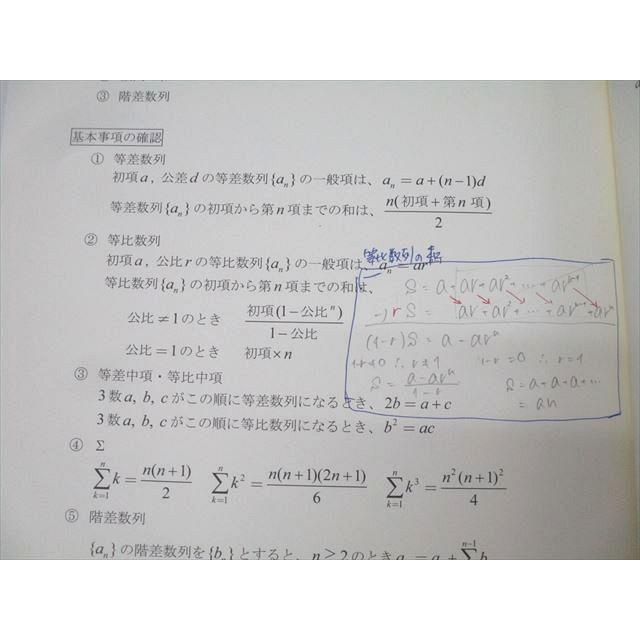 ③ 階差数列
基本事項の確認
① 等差数列
初項a, 公差dの等差数列{aₙ}の一般項は、aₙ = a+(n−1)d
等差数列{aₙ}の初項から第n項までの和は、n(初項+第n項)/2
② 等比数列
等比数列の和
初項a, 公比rの等比数列{aₙ}の一般項は、aₙ = ar
等比数列{aₙ}の初項から第n項までの和は、
公比≠1のとき 初項(1−公比ⁿ)/1−公比
公比=1のとき 初項×n
S = a+ar+ar²+…+arⁿ⁻¹
−) rS = ar+ar²+…+arⁿ⁻¹+arⁿ
(1−r)S = a − arⁿ
1−r≠0 ∴ r≠1 1−r=0 ∴ r=1
S = a−arⁿ/1−r S = a+a+a+…
= an
③ 等差中項・等比中項
3数a, b, cがこの順に等差数列になるとき、2b = a+c
3数a, b, cがこの順に等比数列になるとき、b² = ac
④ Σ
∑ₖ₌₁ⁿ k = n(n+1)/2 ∑ₖ₌₁ⁿ k² = n(n+1)(2n+1)/6 ∑ₖ₌₁ⁿ k³ = n²(n+1)²/4
⑤ 階差数列
{aₙ}の階差数列を{bₙ}とすると、n≥2のとき